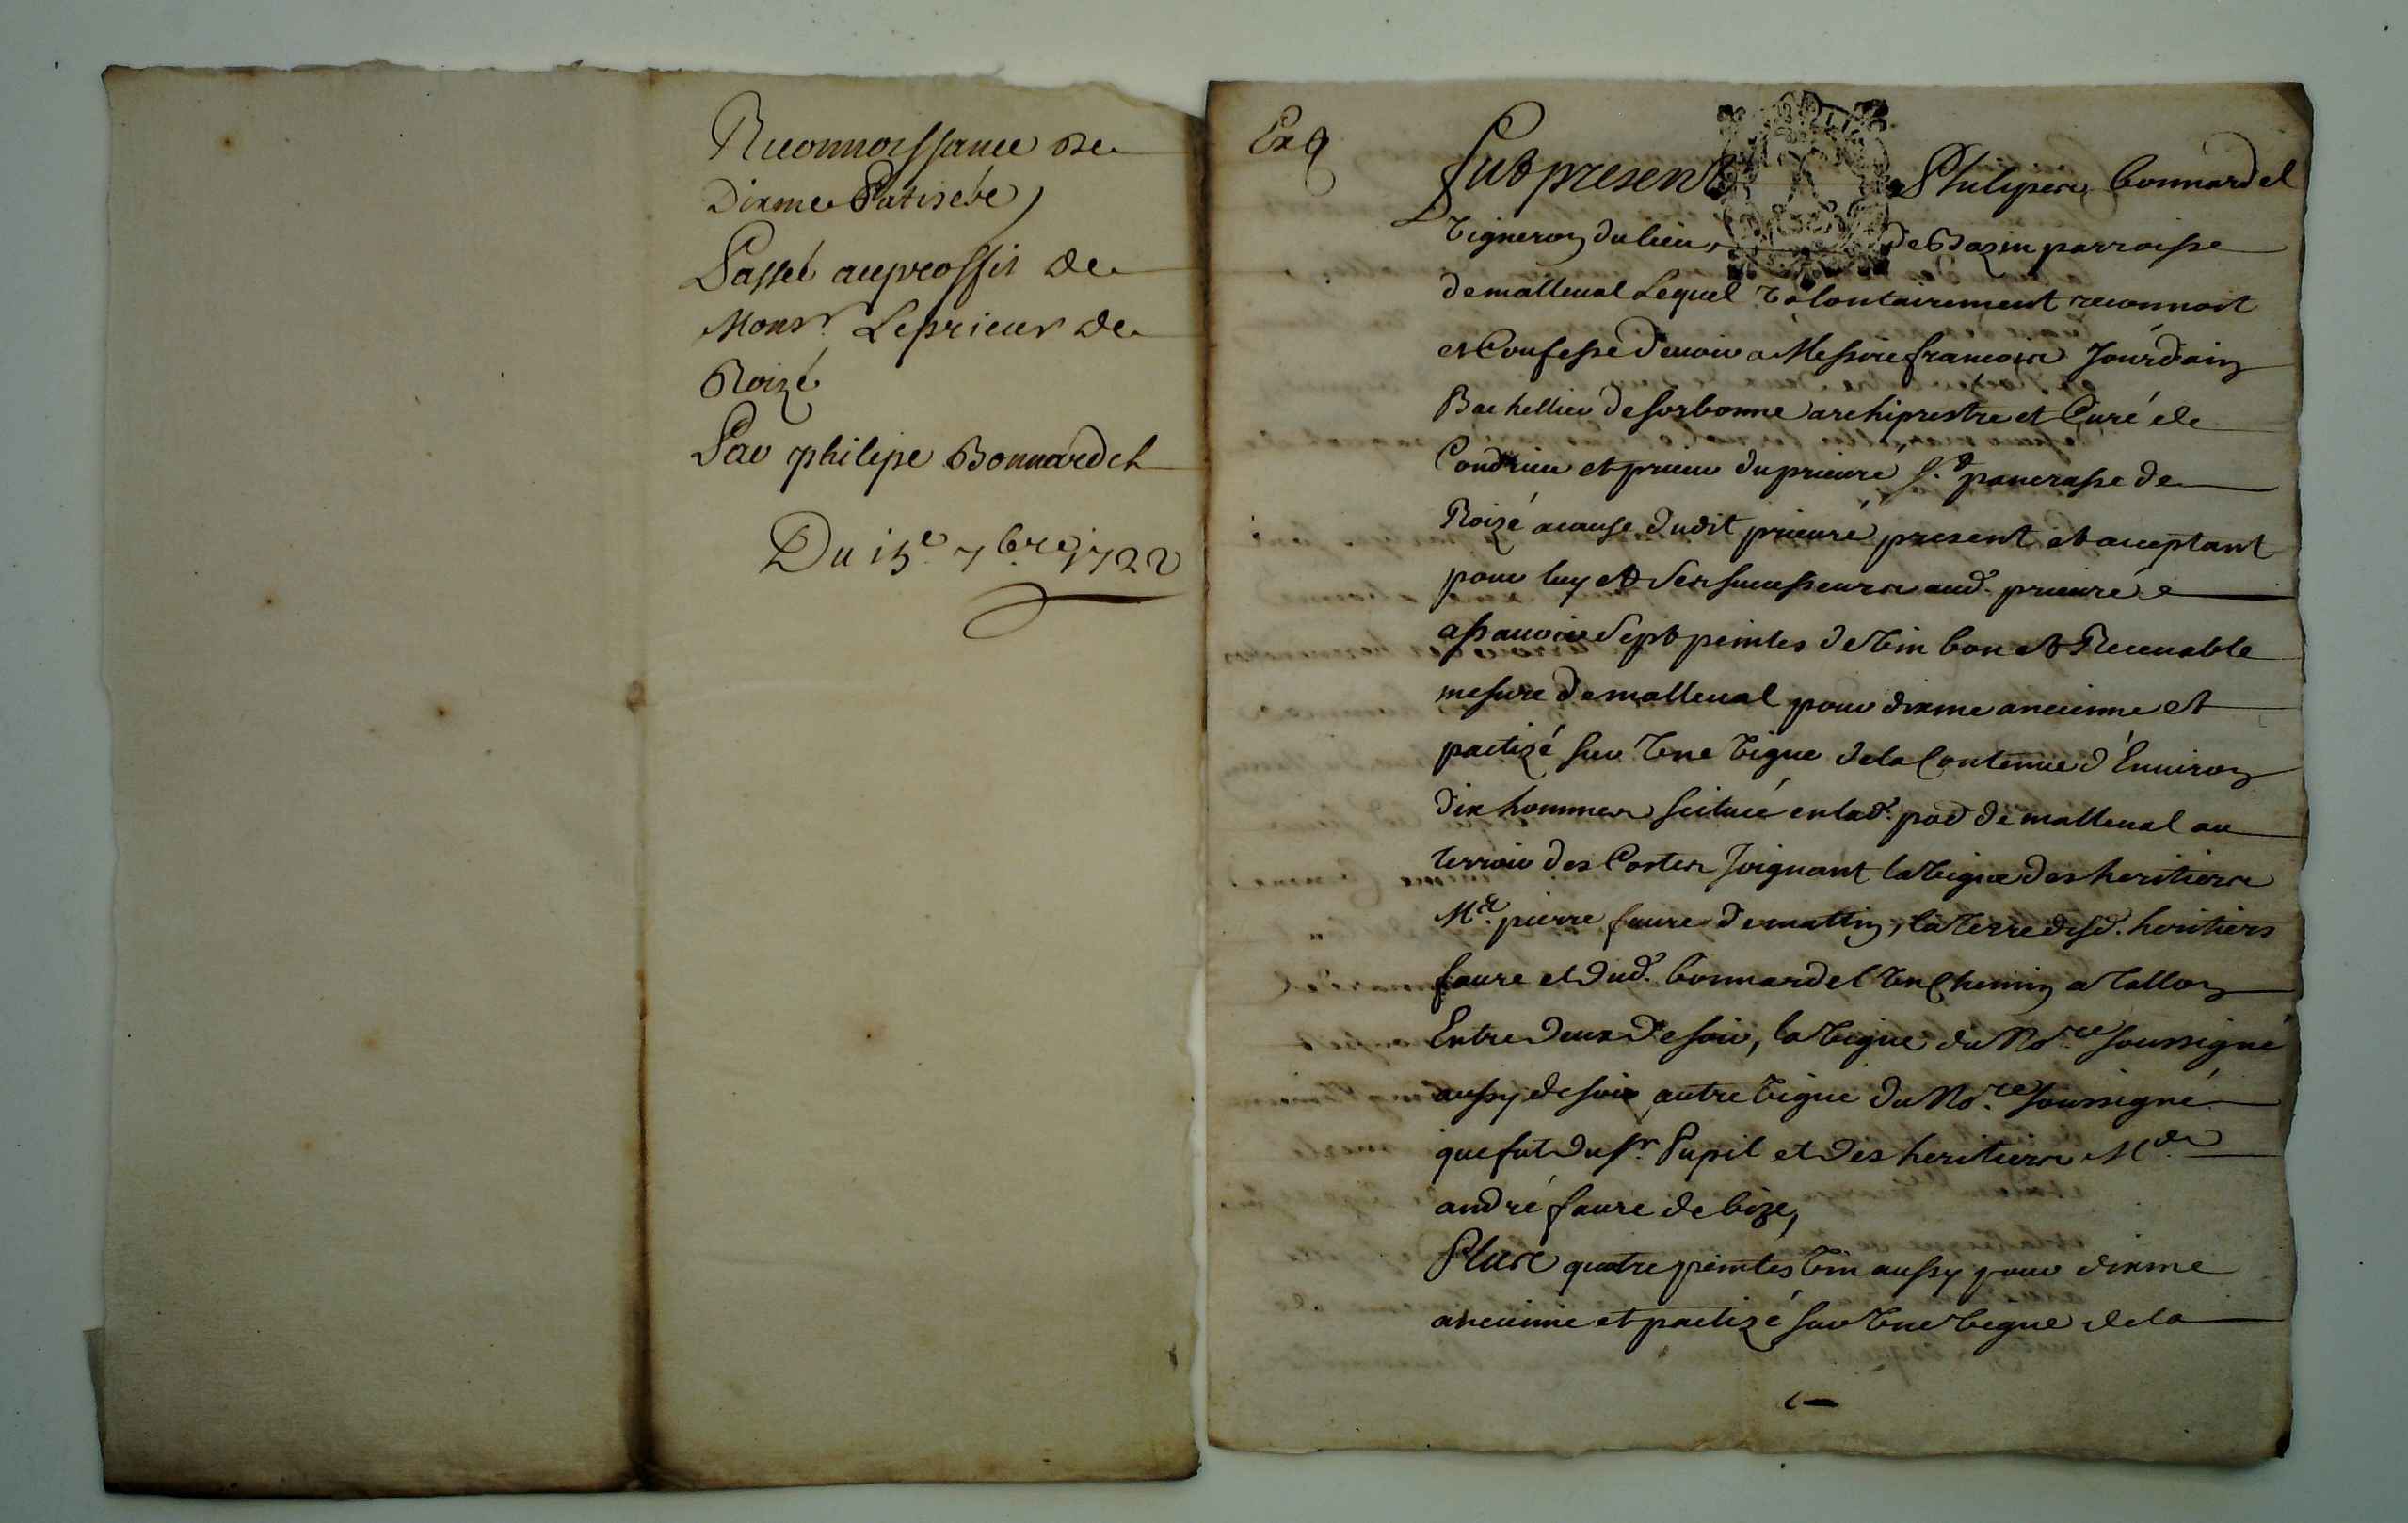 Reconnoissance De
Dixme Patisée
Passée auproffit de
Monsr. Leprieur de
Roizé
Par philipe Bonnardel
Du 15e. 7bre. 1722
Exp
Fut present Philipes bonnardel
vigneron du lieu de Bazin parroisse
de malleual Lequel volontairement reconnoit
et Confesse deuoir a Messire francois Jourdain
Bachellier de sorbonne archiprestre et Curé de
Condrieu et prieur du prieuré St. pancrasse de
Roizé a cause dudit prieuré present et acceptant
pour luy et Ses successeurs aud. prieuré
assauoir Sept peintes de vin bon et Receuable
mesure de malleual pour dixme ancienne et
pactizé sur vne vigne de la Contenue d'Enuiron
dix hommes scituée en lad. pad de malleual au
terroir des Costes Joignant la vigne des heritiers
Me. pierre faure de mattin, la terre desd. heritiers
faure et dud. bonnardel vn Chemin a tallon
Entre deux de soir, la vigne du Nore. soussigné
aussy de soir autre vigne du Nore. soussigné
que fut du sr. Pupil et des heritiers Me.
andré faure de bize,
Plus quatre peintes vin aussy pour dixme
ancienne et pactizé sur vne vigne de la